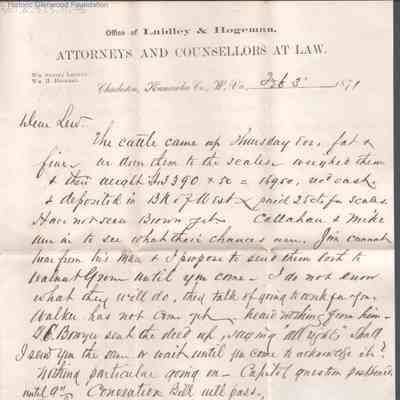 Historic Glenwood Foundation
Office of Laidley & Hogeman,
ATTORNEYS AND COUNSELLORS AT LAW.
Wm Sydney Laidley.
Wm H. Hogeman.
Charleston, Kanawha Co., W. Va. Feb 3 1871
Dear Lew.
The cattle came up Thursday Eve, fat &
fine. We drove them to the scales weighed them
& their weight 3390 × 5c = 169.50, net cash.
& deposited in Bk of West & paid 25cts for scales.
Have not seen Brown yet. Callahan & Mike
in to see what their chances were. Jim cannot
hear from his man & I propose to send them both to
Walnut Grove until you come. I do not know
what they will do, they talk of going to work for you.
Walker has not come yet, heard nothing from him.
Bowyer sent the deed up, saying "all right". Shall
I send you the same or wait until you come to acknowledge it?
Nothing particular going on. Capitol question postponed
until 9th. Convention Bill will pass.